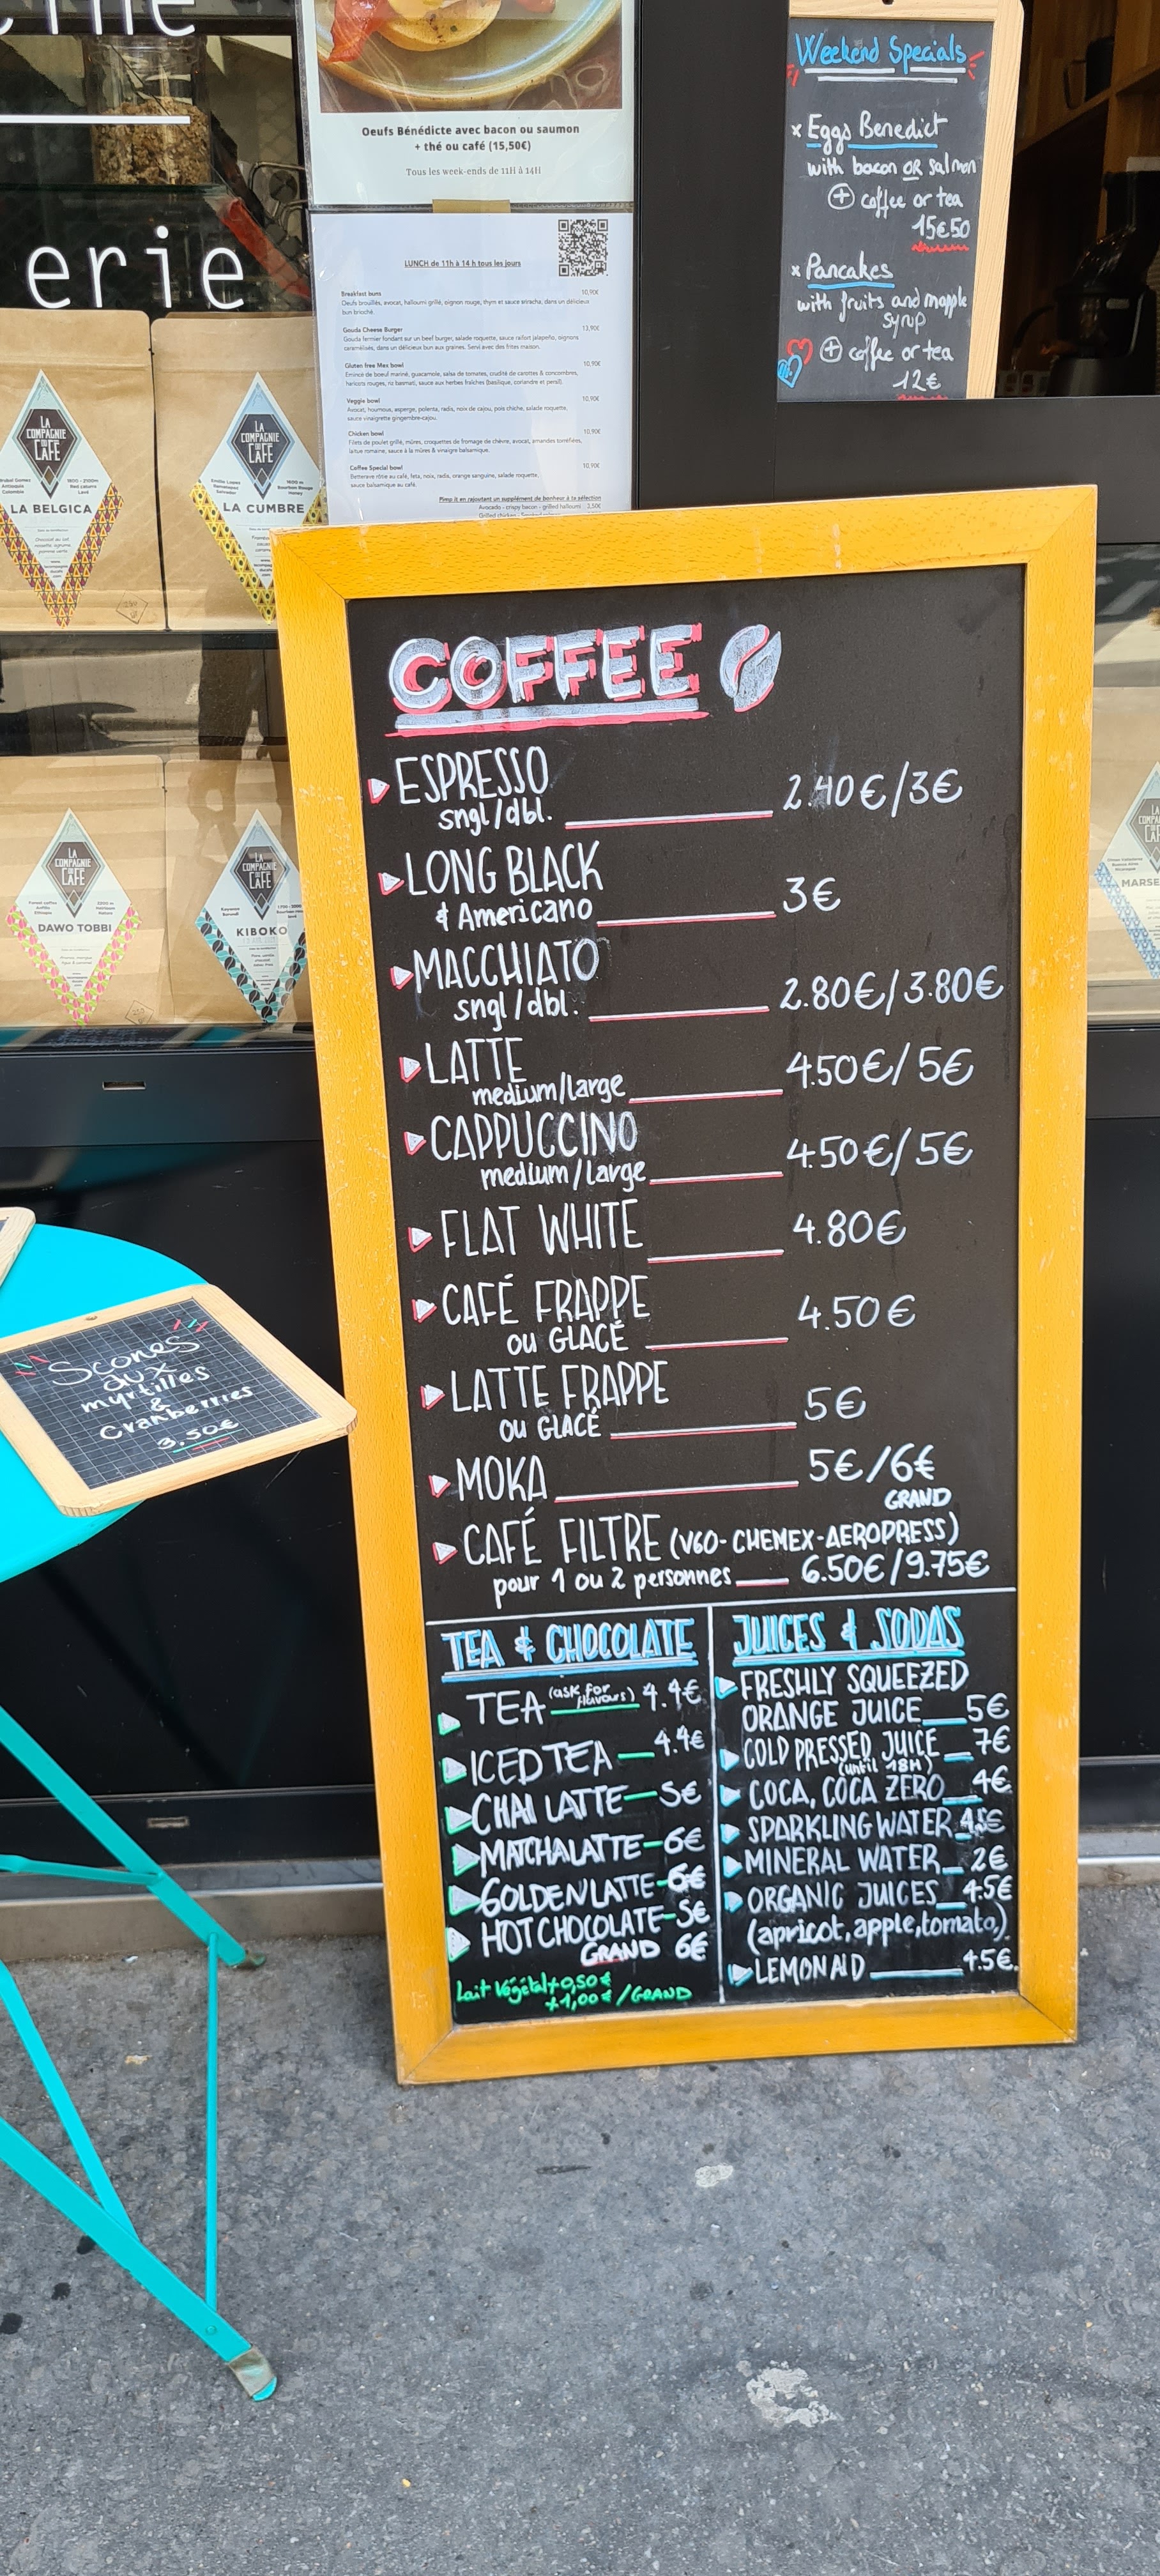 erie
Oeufs Bénédicte avec bacon ou saumon
+ thé ou café (15,50€)
Tous les week-ends de 11H à 14H
LUNCH de 11h à 14 h tous les jours
Breakfast buns 10,90€
Oeufs brouillés, avocat, halloumi grillé, oignon rouge, thym et sauce sriracha, dans un délicieux
bun brioché.
Gouda Cheese Burger 13,90€
Gouda fermier fondant sur un beef burger, salade roquette, sauce raifort jalapeño, oignons
caramélisés, dans un délicieux bun aux graines. Servi avec des frites maison.
Gluten free Mex bowl 10,90€
Emincé de boeuf mariné, guacamole, salsa de tomates, crudité de carottes & concombres,
haricots rouges, riz basmati, sauce aux herbes fraîches (basilique, coriandre et persil).
Veggie bowl 10,90€
Avocat, houmous, asperge, polenta, radis, noix de cajou, pois chiche, salade roquette,
sauce vinaigrette gingembre-cajou.
Chicken bowl 10,90€
Filets de poulet grillé, mûres, croquettes de fromage de chèvre, avocat, amandes torréfiées,
laitue romaine, sauce à la mûres & vinaigre balsamique.
Coffee Special bowl 10,90€
Betterave rôtie au café, feta, noix, radis, orange sanguine, salade roquette.
sauce balsamique au café.
Pimp it en rajoutant un supplément de bonheur à ta sélection
Avocado - crispy bacon - grilled halloumi 2,50€
Weekend Specials
x Eggs Benedict
with bacon OR salmon
+ coffee or tea
15€50
x Pancakes
with fruits and mapple
syrup
+ coffee or tea
12€
LA COMPAGNIE DU CAFÉ
LA BELGICA
LA COMPAGNIE DU CAFÉ
LA CUMBRE
LA COMPAGNIE DU CAFÉ
DAWO TOBBI
LA COMPAGNIE DU CAFÉ
KIBOKO
MARSE
COFFEE
ESPRESSO
sngl/dbl. 2.40€/3€
LONG BLACK
& Americano 3€
MACCHIATO
sngl/dbl. 2.80€/3.80€
LATTE
medium/large 4.50€/5€
CAPPUCCINO
medium/large 4.50€/5€
FLAT WHITE 4.80€
CAFÉ FRAPPE
OU GLACÉ 4.50€
LATTE FRAPPE
OU GLACÉ 5€
MOKA 5€/6€
GRAND
CAFÉ FILTRE (V60-CHEMEX-AEROPRESS)
pour 1 ou 2 personnes 6.50€/9.75€
TEA & CHOCOLATE
TEA (ask for flavours) 4.4€
ICED TEA 4.4€
CHAI LATTE 5€
MATCHA LATTE 6€
GOLDEN LATTE 6€
HOT CHOCOLATE 5€
GRAND 6€
Lait Végétal +0,50€
+1,00€/GRAND
JUICES & SODAS
FRESHLY SQUEEZED
ORANGE JUICE 5€
COLD PRESSED JUICE 7€
(until 18H)
COCA, COCA ZERO 4€
SPARKLING WATER 4.5€
MINERAL WATER 2€
ORGANIC JUICES 4.5€
(apricot, apple, tomato,)
LEMONAID 4.5€
Scones
aux
myrtilles
&
Cranberries
3.50€